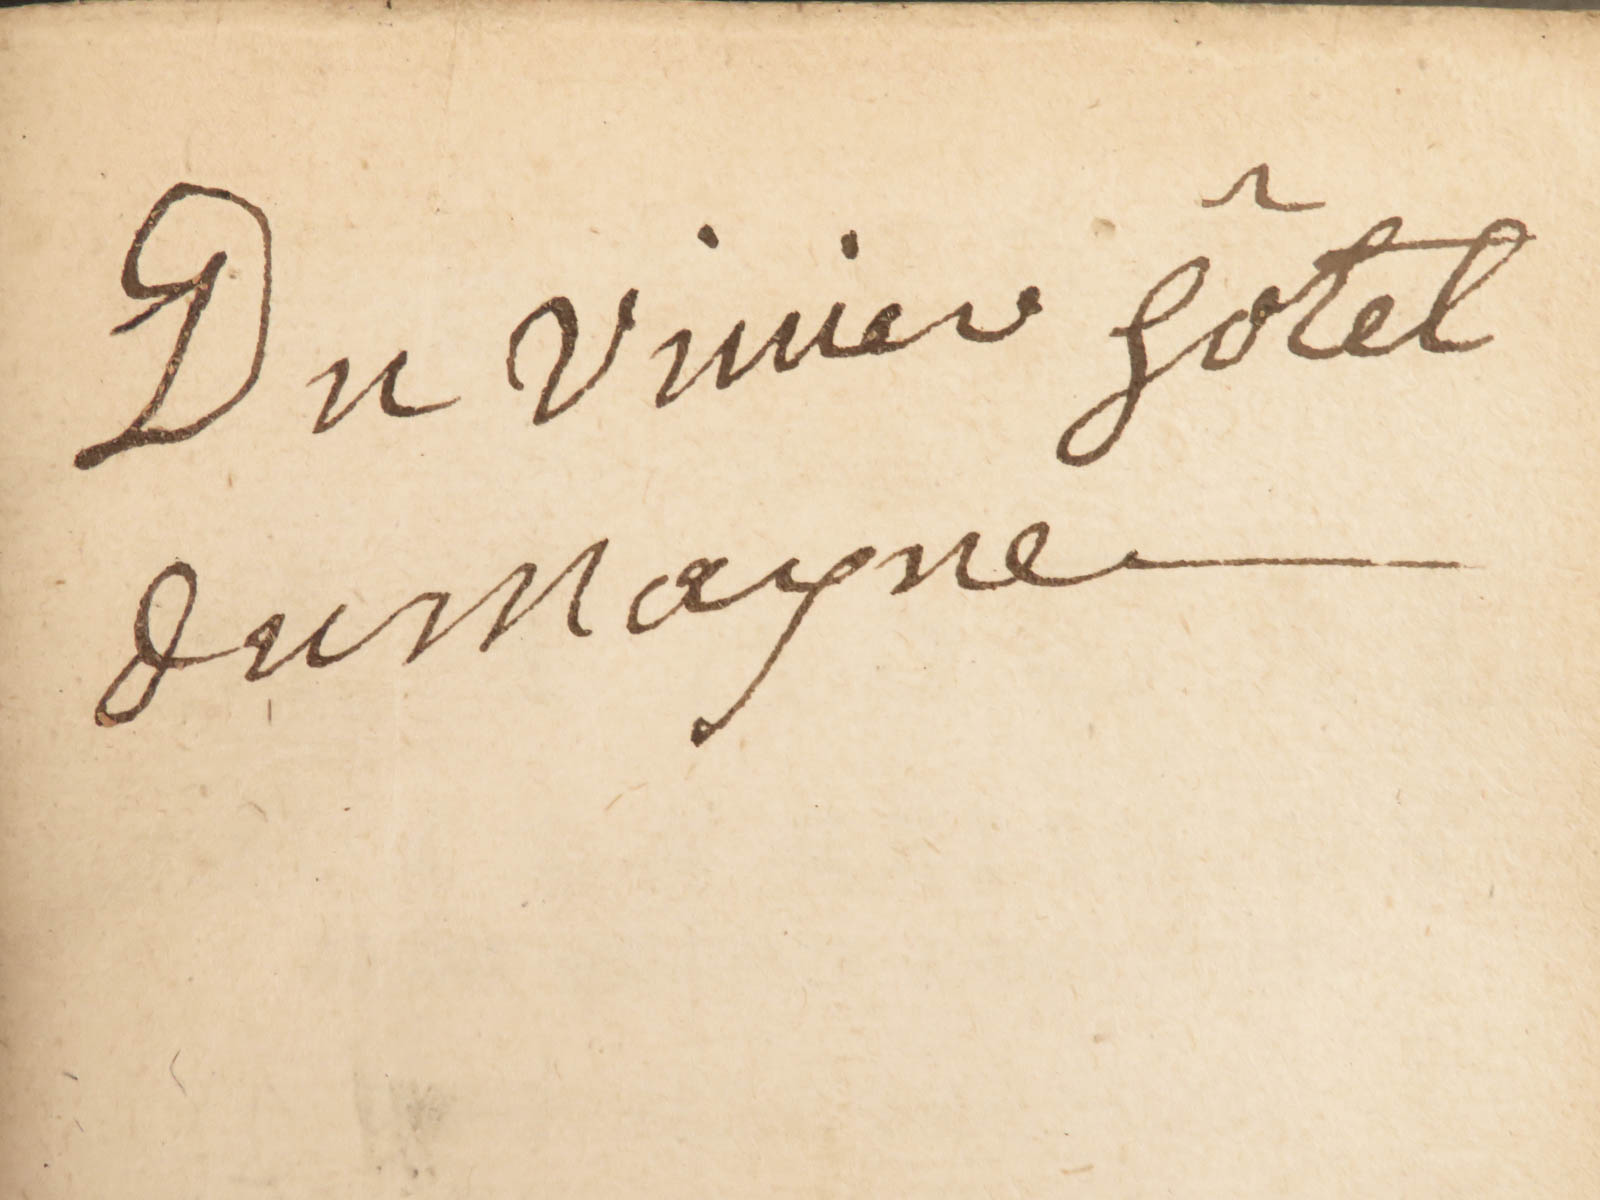 Du Vivier hôtel
du Mayne